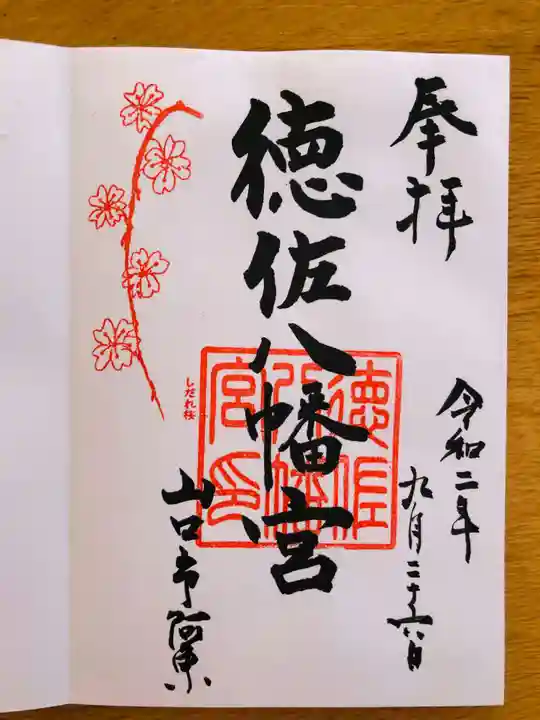 奉拝
令和二年
九月二十六日
徳佐八幡宮
徳佐
八幡
宮印
しだれ桜
山口市阿東